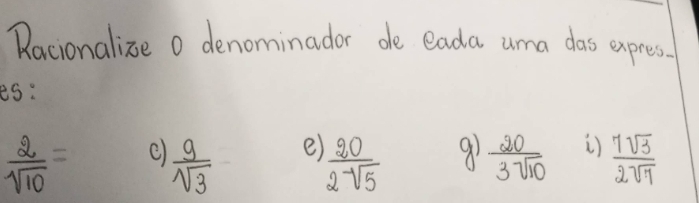 Racionalize o denominador de cada uma das expres-
es:
2/√10 = c) 9/√3 e) 20/2√5 g) 20/3√10 i) 7√3/2√7